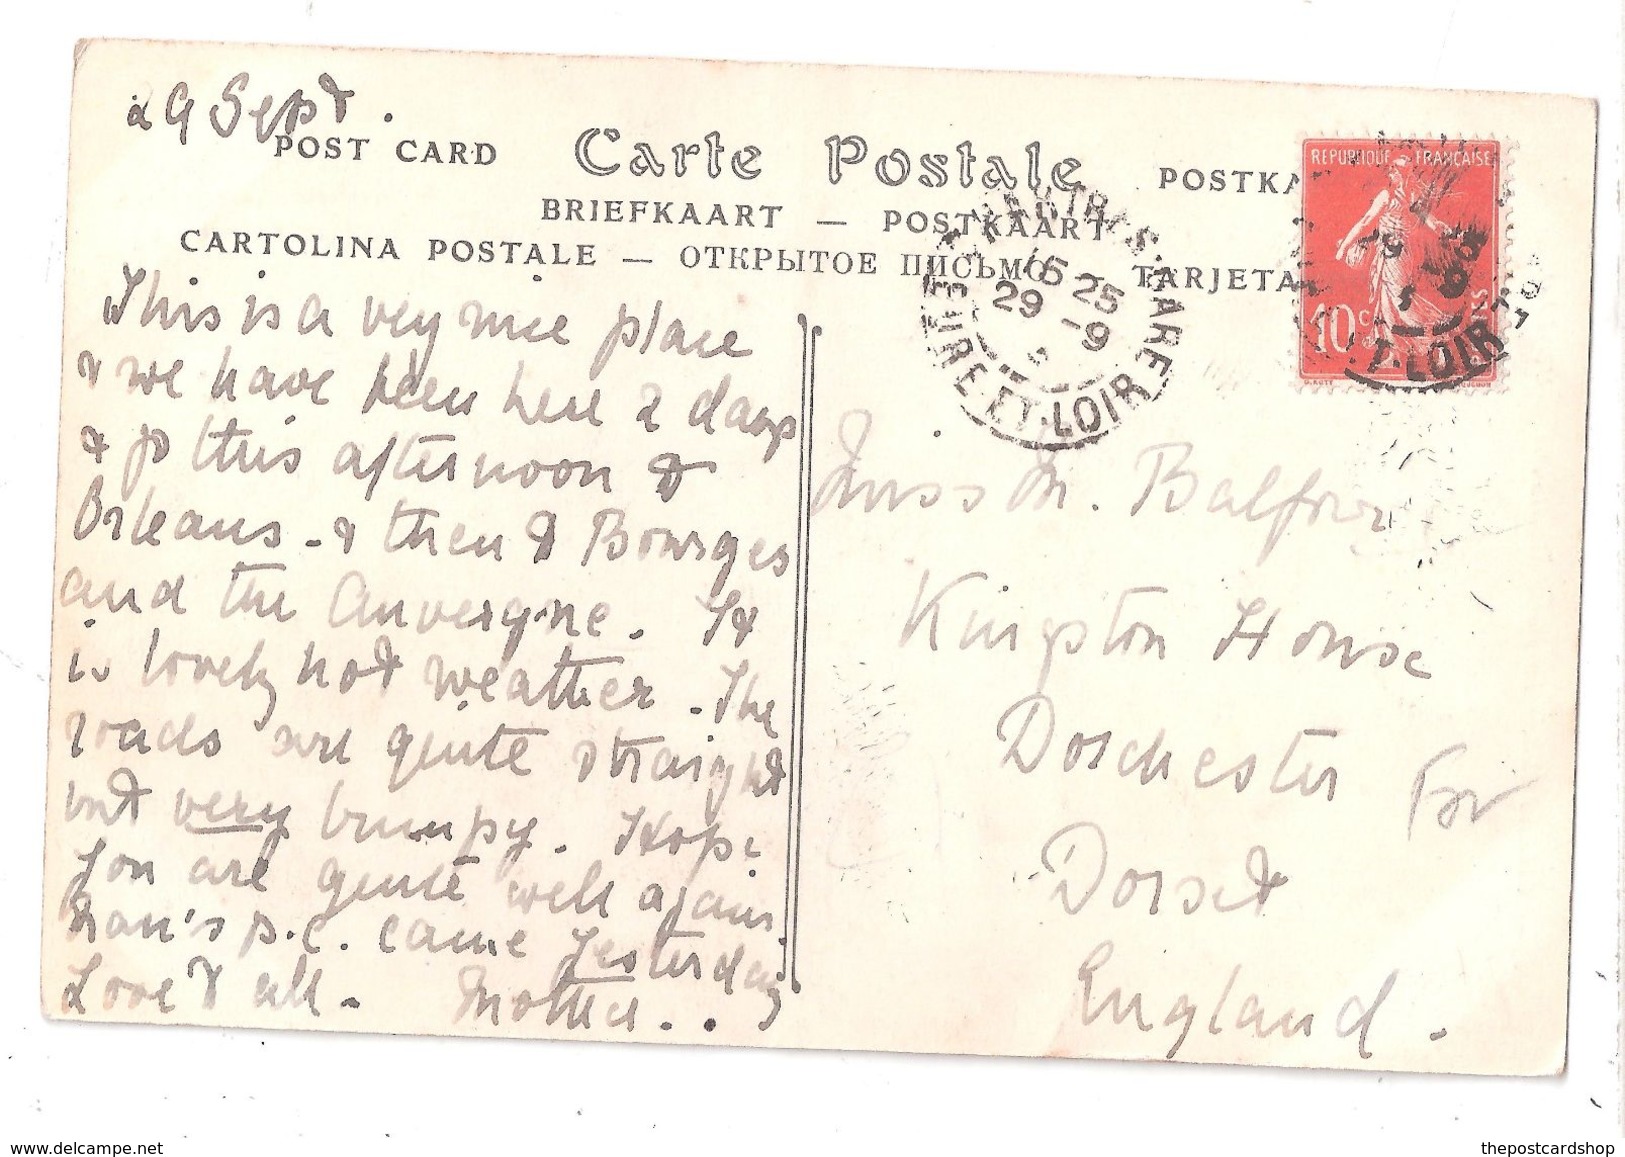 29 Sept.
POST CARD Carte Postale POSTKA
BRIEFKAART — POSTKAART
CARTOLINA POSTALE — ОТКРЫТОЕ ПИСЬМО — TARJETA
REPUBLIQUE FRANÇAISE
10 c
CHARTRES·GARE
15 25
29 - 9
EURE·ET·LOIR
ET·LOIR
This is a very nice place
& we have been here 2 days
& go this afternoon to
Orleans - & then to Bourges
and the Auvergne. It
is lovely hot weather. The
roads are quite straight
but very bumpy. Hope
you are quite well again.
p.c. came yesterday
Love to all - Mother..
Miss M. Balfour
Kingston House
Dorchester
Dorset
England.
thepostcardshop
www.delcampe.net